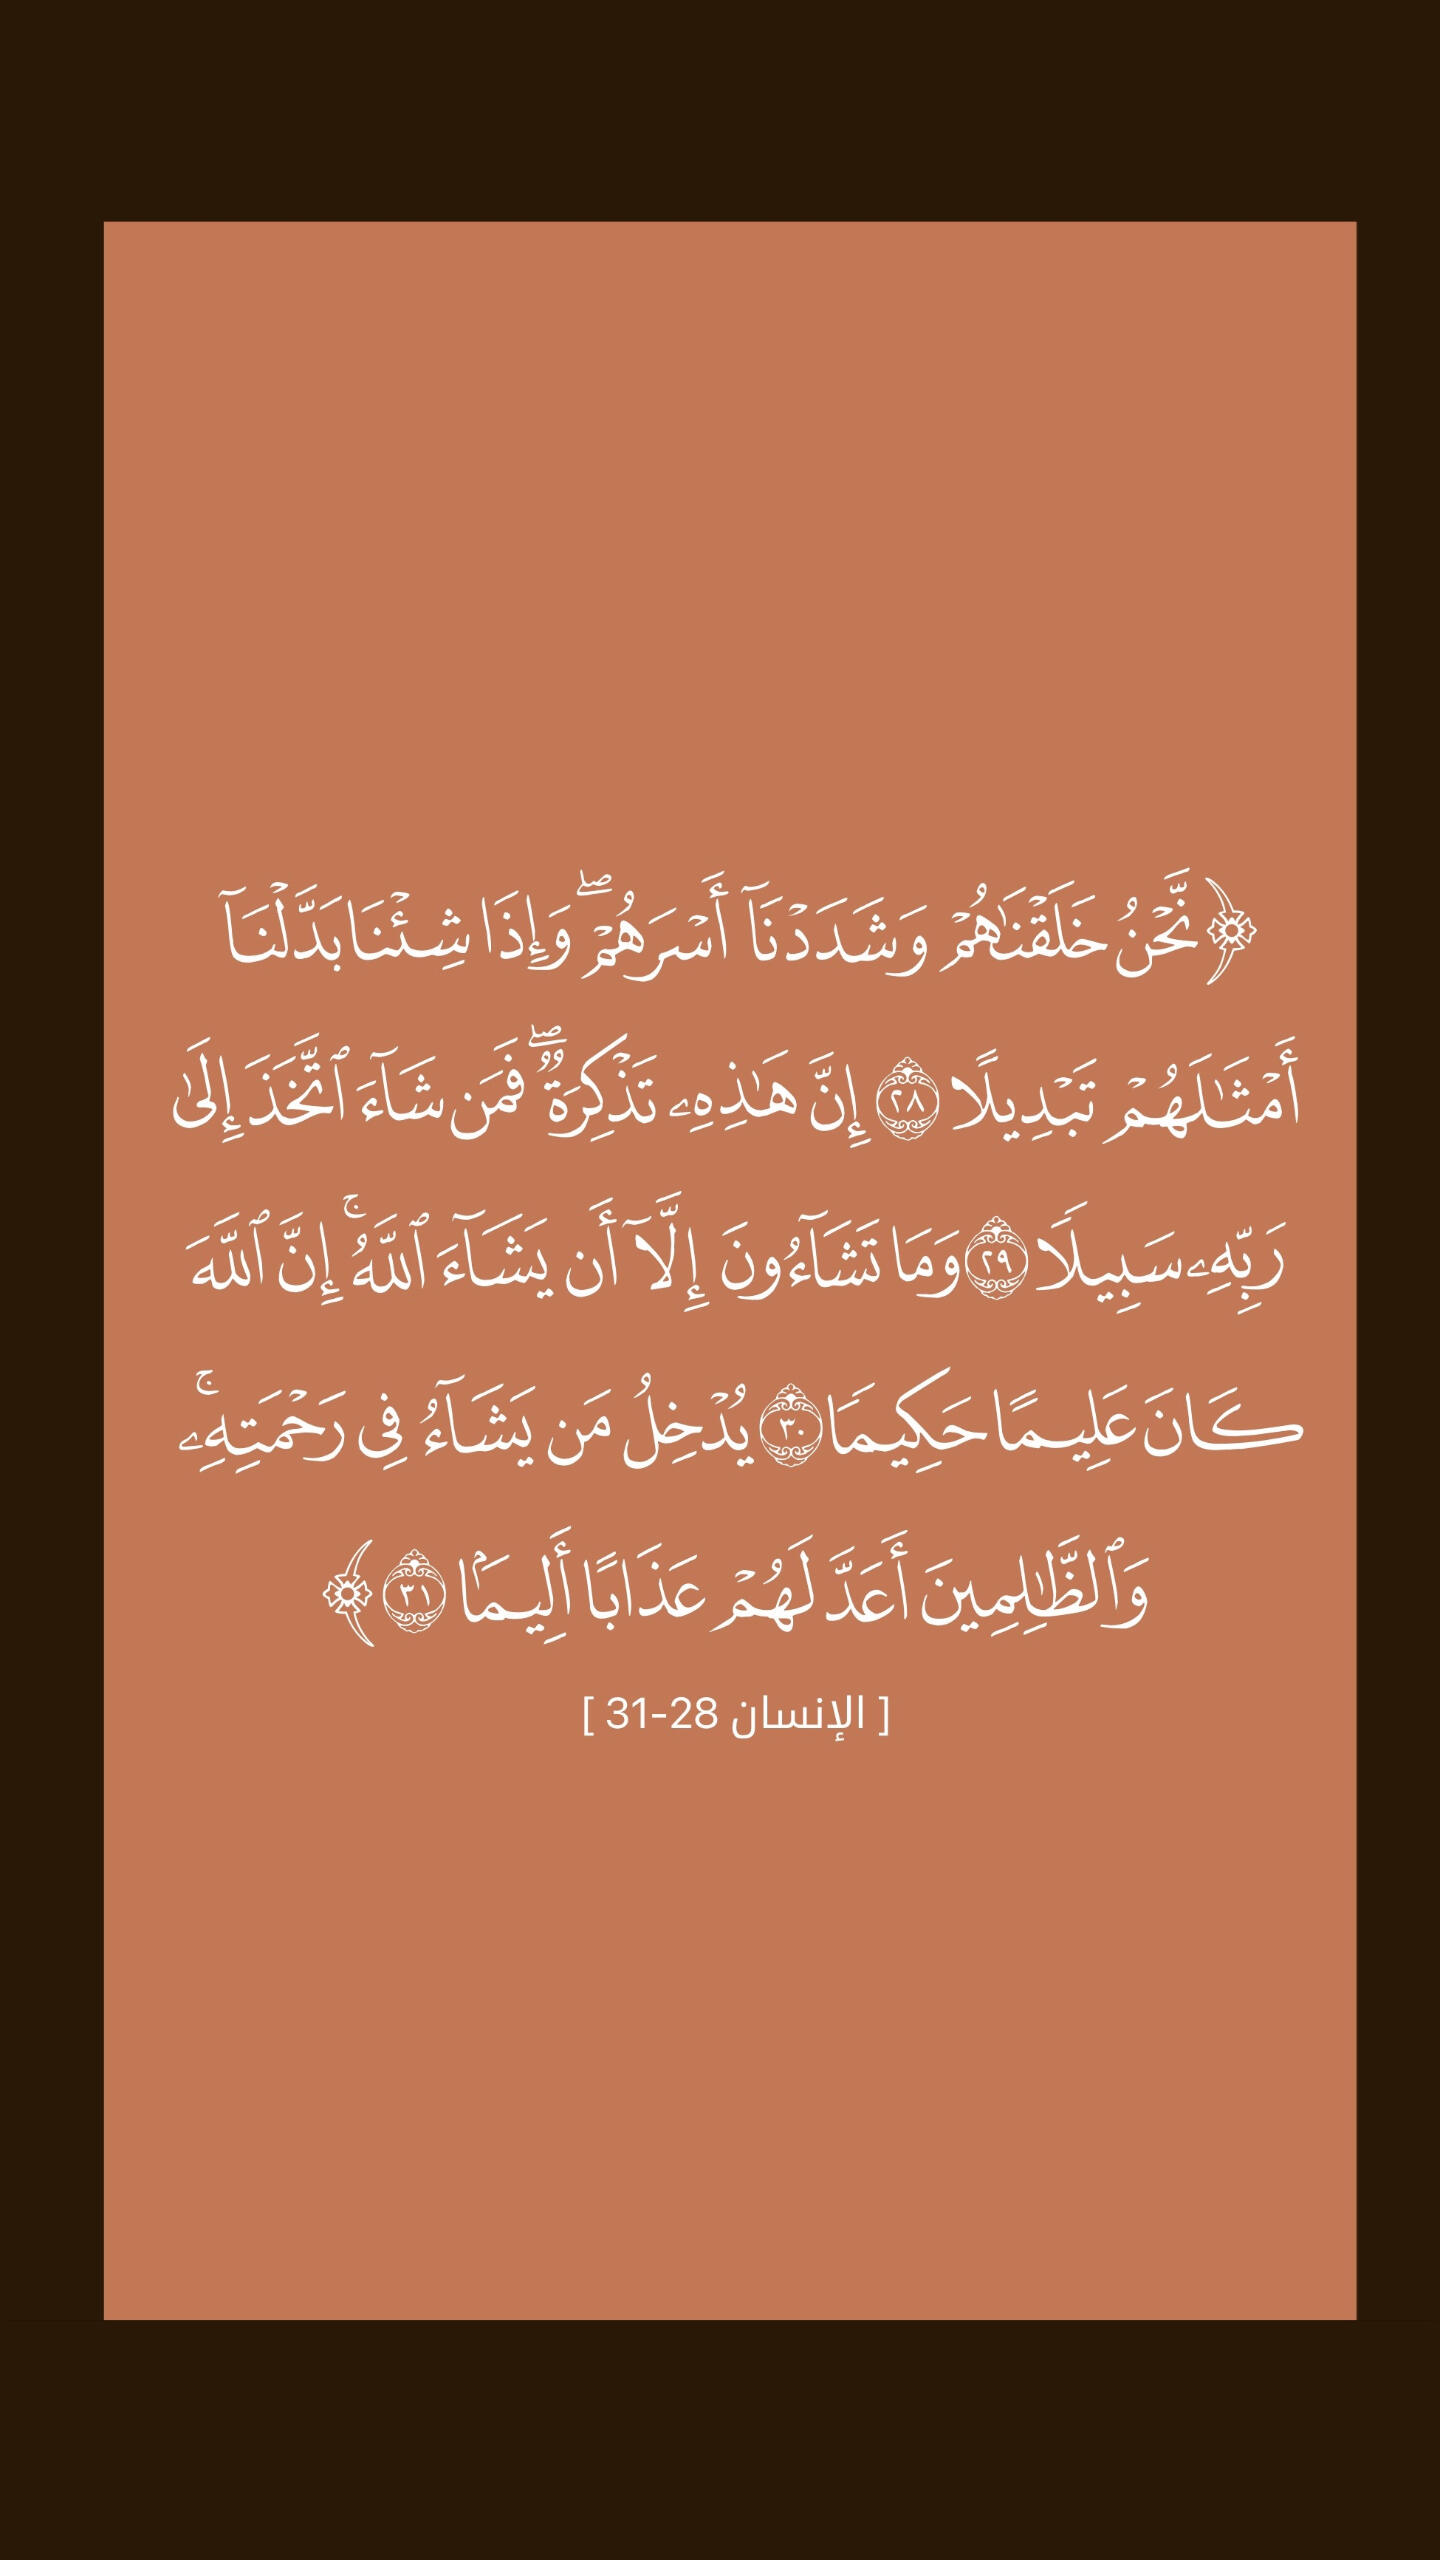 ﴿نَّحۡنُ خَلَقۡنَٰهُمۡ وَشَدَدۡنَآ أَسۡرَهُمۡۖ وَإِذَا شِئۡنَا بَدَّلۡنَآ
أَمۡثَٰلَهُمۡ تَبۡدِيلًا ٢٨ إِنَّ هَٰذِهِۦ تَذۡكِرَةٞۖ فَمَن شَآءَ ٱتَّخَذَ إِلَىٰ
رَبِّهِۦ سَبِيلٗا ٢٩ وَمَا تَشَآءُونَ إِلَّآ أَن يَشَآءَ ٱللَّهُۚ إِنَّ ٱللَّهَ
كَانَ عَلِيمًا حَكِيمٗا ٣٠ يُدۡخِلُ مَن يَشَآءُ فِي رَحۡمَتِهِۦۚ
وَٱلظَّٰلِمِينَ أَعَدَّ لَهُمۡ عَذَابًا أَلِيمَۢا ٣١﴾
[ الإنسان 28-31 ]